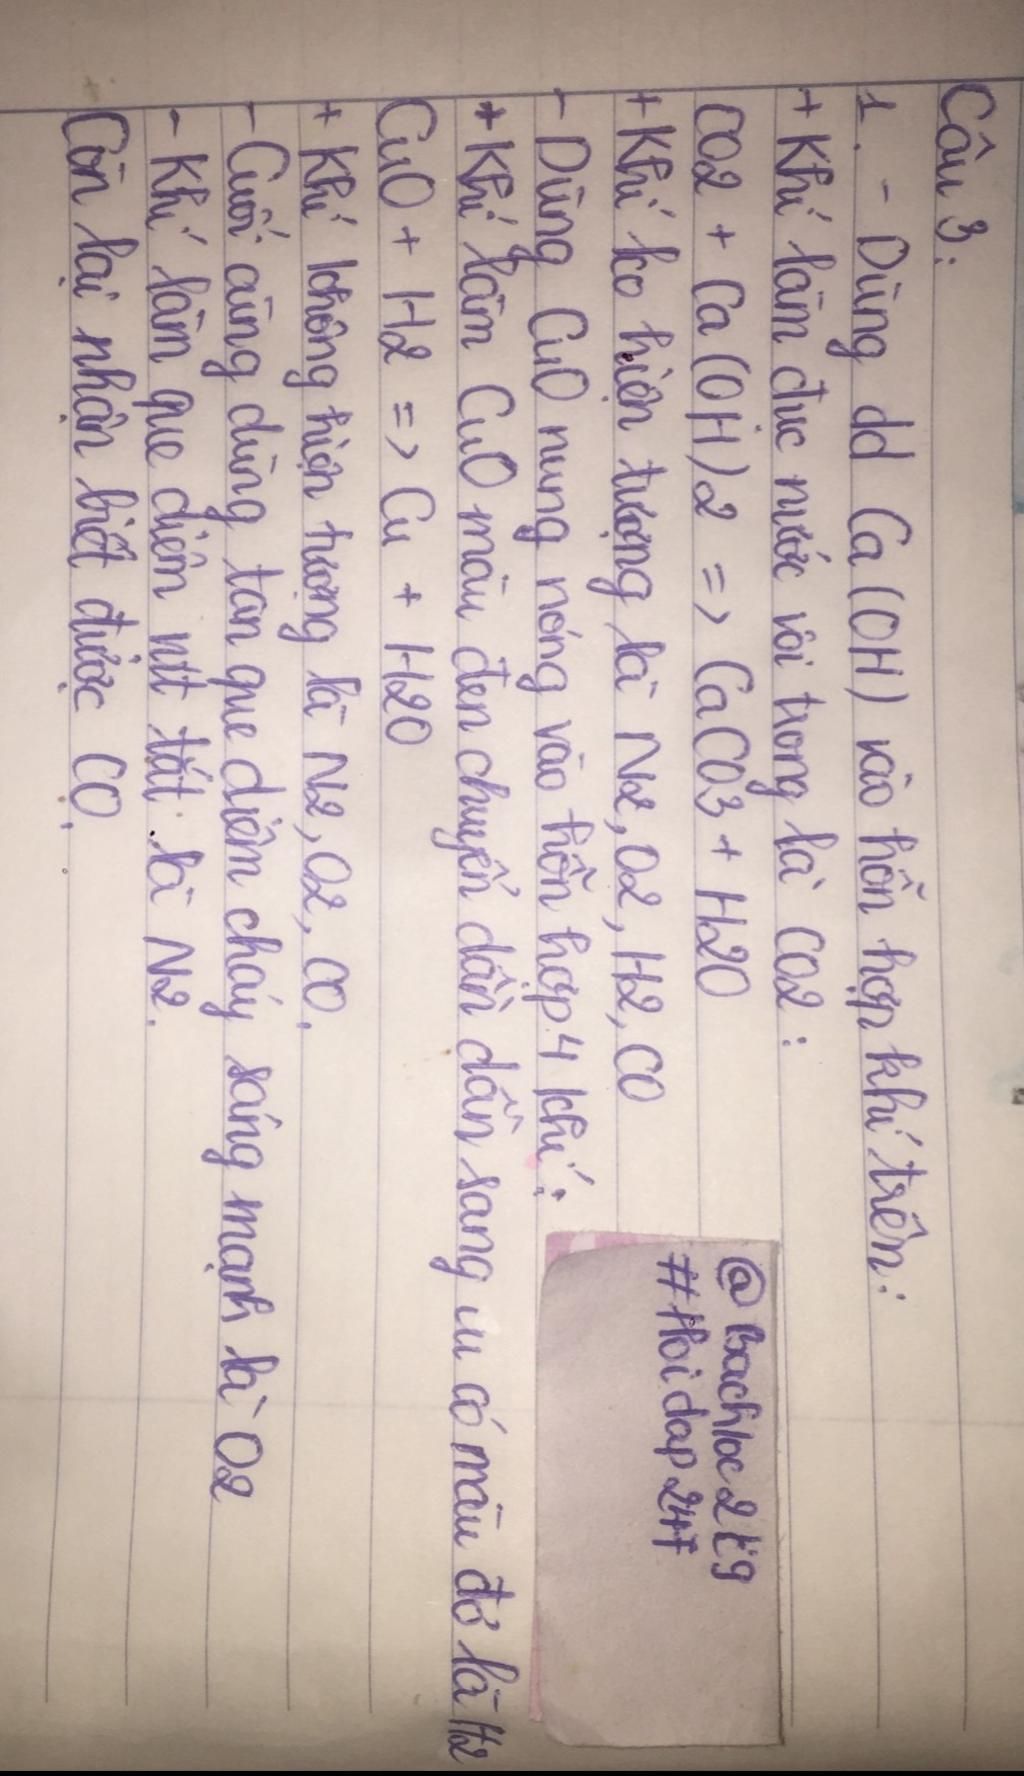 Câu 3:
1. - Dùng dd Ca(OH) vào hỗn hợp khí trên:
+ Khí làm đục nước vôi trong là CO2:
CO2 + Ca(OH)2 => CaCO3 + H2O
+ Khí ko hiện tượng là N2, O2, H2, CO
- Dùng CuO nung nóng vào hỗn hợp 4 khí:
+ Khí làm CuO màu đen chuyển dần dần sang cu có màu đỏ là H2
CuO + H2 => Cu + H2O
+ Khí không hiện tượng là N2, O2, CO.
- Cuối cùng dùng tàn que diêm cháy sáng mạnh là O2
- Khí làm que diêm tắt là N2.
Còn lại nhận biết được CO.
#Hoidap247